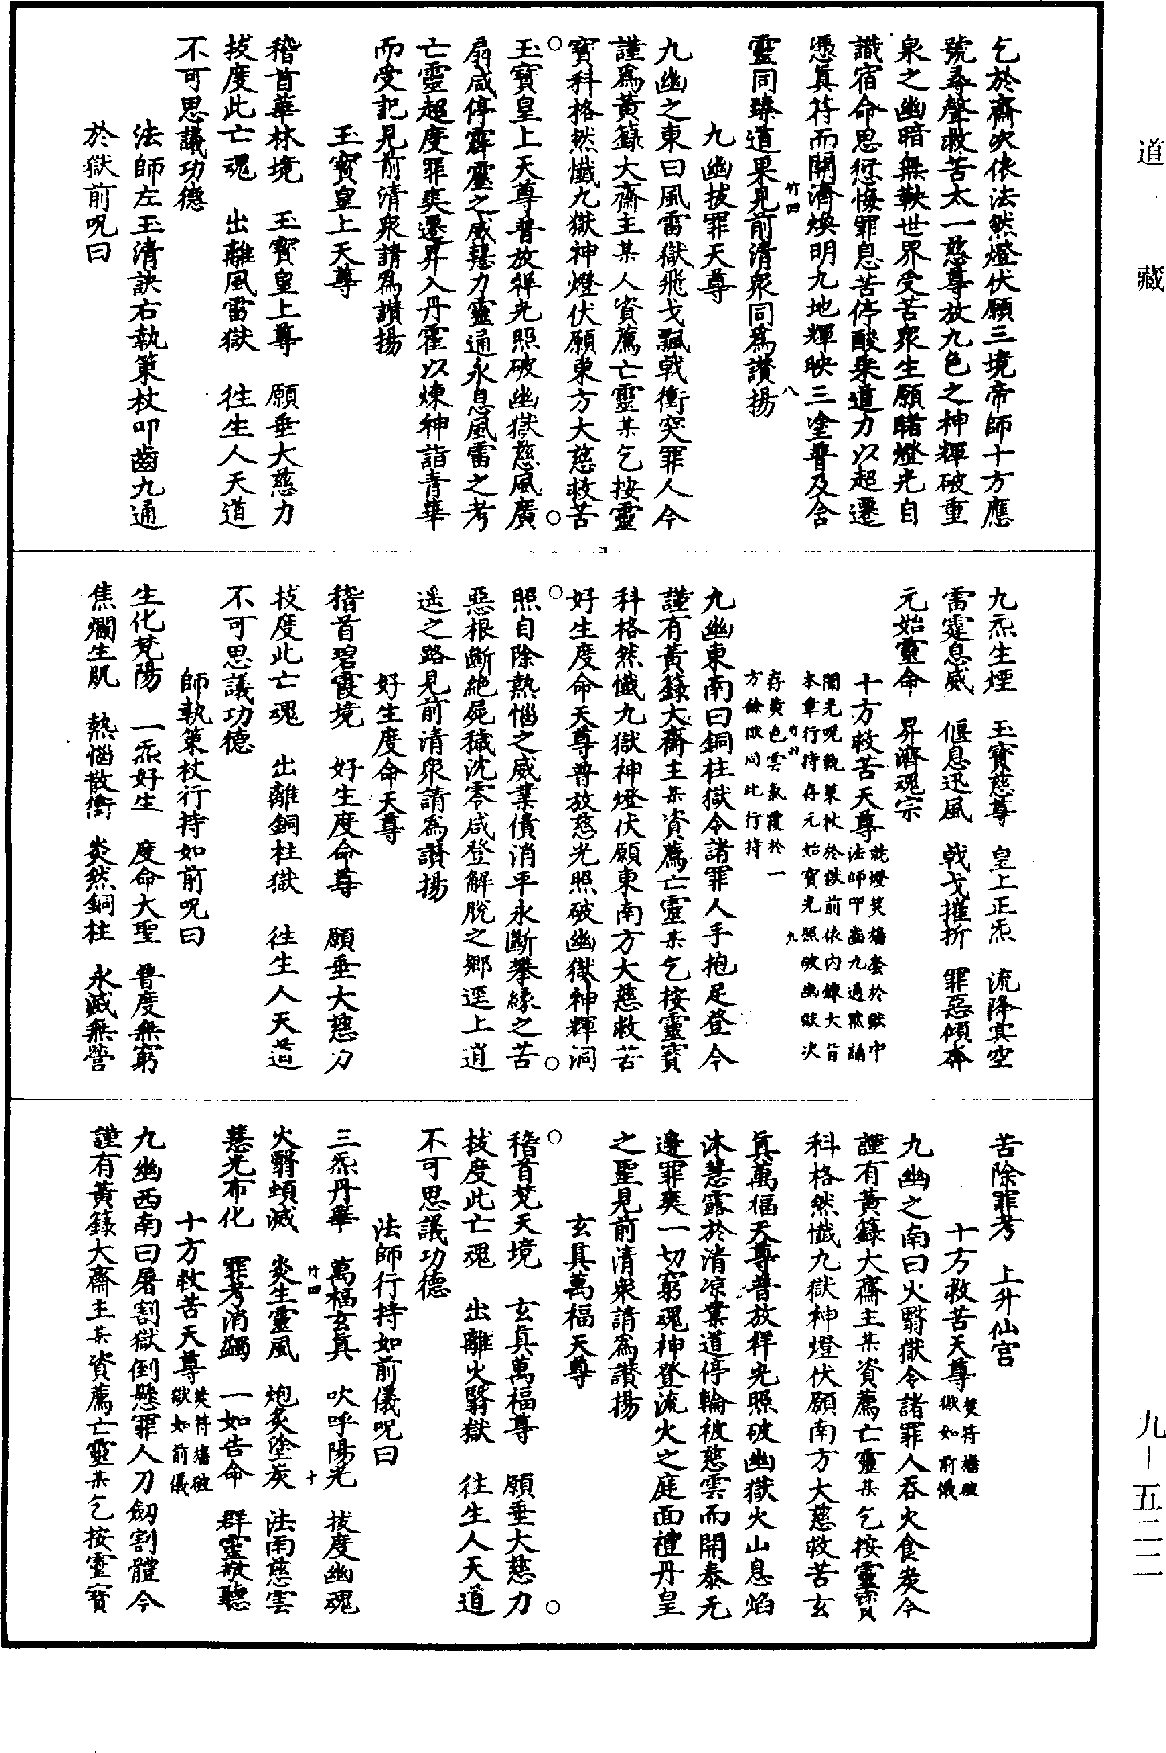 道藏
九—五二二
乞於齋次依法然燈伏願三境帝師十方應
號尋聲救苦太一慈尊放九色之神輝破重
泉之幽暗無鞅世界受苦衆生願睹燈光自
識宿命思愆悔罪息苦停酸乘道力以超遷
憑眞符而開濟煥明九地輝映三塗普及含
靈同臻道果見前清衆同爲讃揚
竹四
八
九幽拔罪天尊
九幽之東曰風雷獄飛戈飄戟衝突罪人今
謹爲黃籙大齋主某人資薦亡靈某乞按靈
寶科格然懺九獄神燈伏願東方大慈救苦
玉寶皇上天尊普放祥光照破幽獄慈風廣
扇咸停霹靂之威慧力靈通永息風雷之考
亡靈超度罪爽遷昇入丹霍以煉神詣青華
而受記見前清衆請爲讃揚
玉寶皇上天尊
稽首華林境　玉寶皇上尊　願垂大慈力
拔度此亡魂　出離風雷獄　往生人天道
不可思議功德
法師左玉清訣右執策杖叩齒九通
於獄前呪曰
九炁生煙　玉寶慈尊　皇上正炁　流降寘空
雷霆息威　偃息迅風　戟戈摧折　罪惡傾奔
元始靈命　昇濟魂宗
十方救苦天尊就燈焚牆壺於獄中
法師叩齒九通黙誦
開光呪執策杖於獄前依內鍊大旨
本章行持存元始寶光照破幽獄次
存黃色雲氣覆於一
方餘獄同此行持
九
九幽東南曰銅柱獄令諸罪人手抱足登今
謹有黃籙大齋主某資薦亡靈某乞按靈寶
科格然懺九獄神燈伏願東南方大慈救苦
好生度命天尊普放慈光照破幽獄神輝洞
照自除熱惱之威業債消平永斷攀緣之苦
惡根斷絶屍穢沈零咸登解脫之鄉逕上逍
遥之路見前清衆請爲讃揚
好生度命天尊
稽首碧霞境　好生度命尊　願垂大慈力
拔度此亡魂　出離銅柱獄　往生人天道
不可思議功德
師執策杖行持如前呪曰
生化梵陽　一炁好生　度命大聖　普度無窮
焦爛生肌　熱惱散衝　炎然銅柱　永滅無營
苦除罪考　上升仙宮
十方救苦天尊焚符牆破
獄如前儀
九幽之南曰火翳獄令諸罪人吞火食炭今
謹有黃籙大齋主某資薦亡靈某乞按靈寶
科格然懺九獄神燈伏願南方大慈救苦玄
眞萬福天尊普放祥光照破幽獄火山息焰
沐慧露於清凉業道停輪被慈雲而開泰无
邊罪爽一切窮魂神登流火之庭面禮丹皇
之聖見前清衆請爲讃揚
玄眞萬福天尊
稽首梵天境　玄眞萬福尊　願垂大慈力
拔度此亡魂　出離火翳獄　往生人天道
不可思議功德
法師行持如前儀呪曰
三炁丹華　萬福玄眞　吹呼陽光　拔度幽魂
竹四
十
火翳頓滅　炎生靈風　炮炙塗炭　法雨慈雲
慧光布化　罪考消蠲　一如告命　群靈敬聽
十方救苦天尊焚符牆破
獄如前儀
九幽西南曰屠割獄倒懸罪人刀劒割體今
謹有黃籙大齋主某資薦亡靈某乞按靈寶